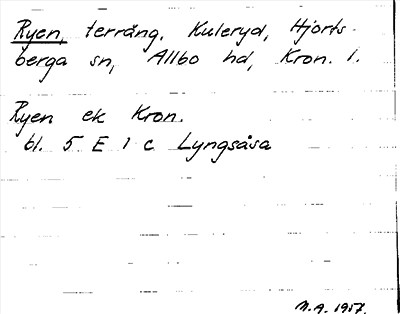 Ryen, terräng, Kuleryd, Hjorts-
berga sn, Allbo hd, Kron. l.
Ryen ek Kron.
bl. 5 E 1 c Lyngsåsa
M.A. 1957.